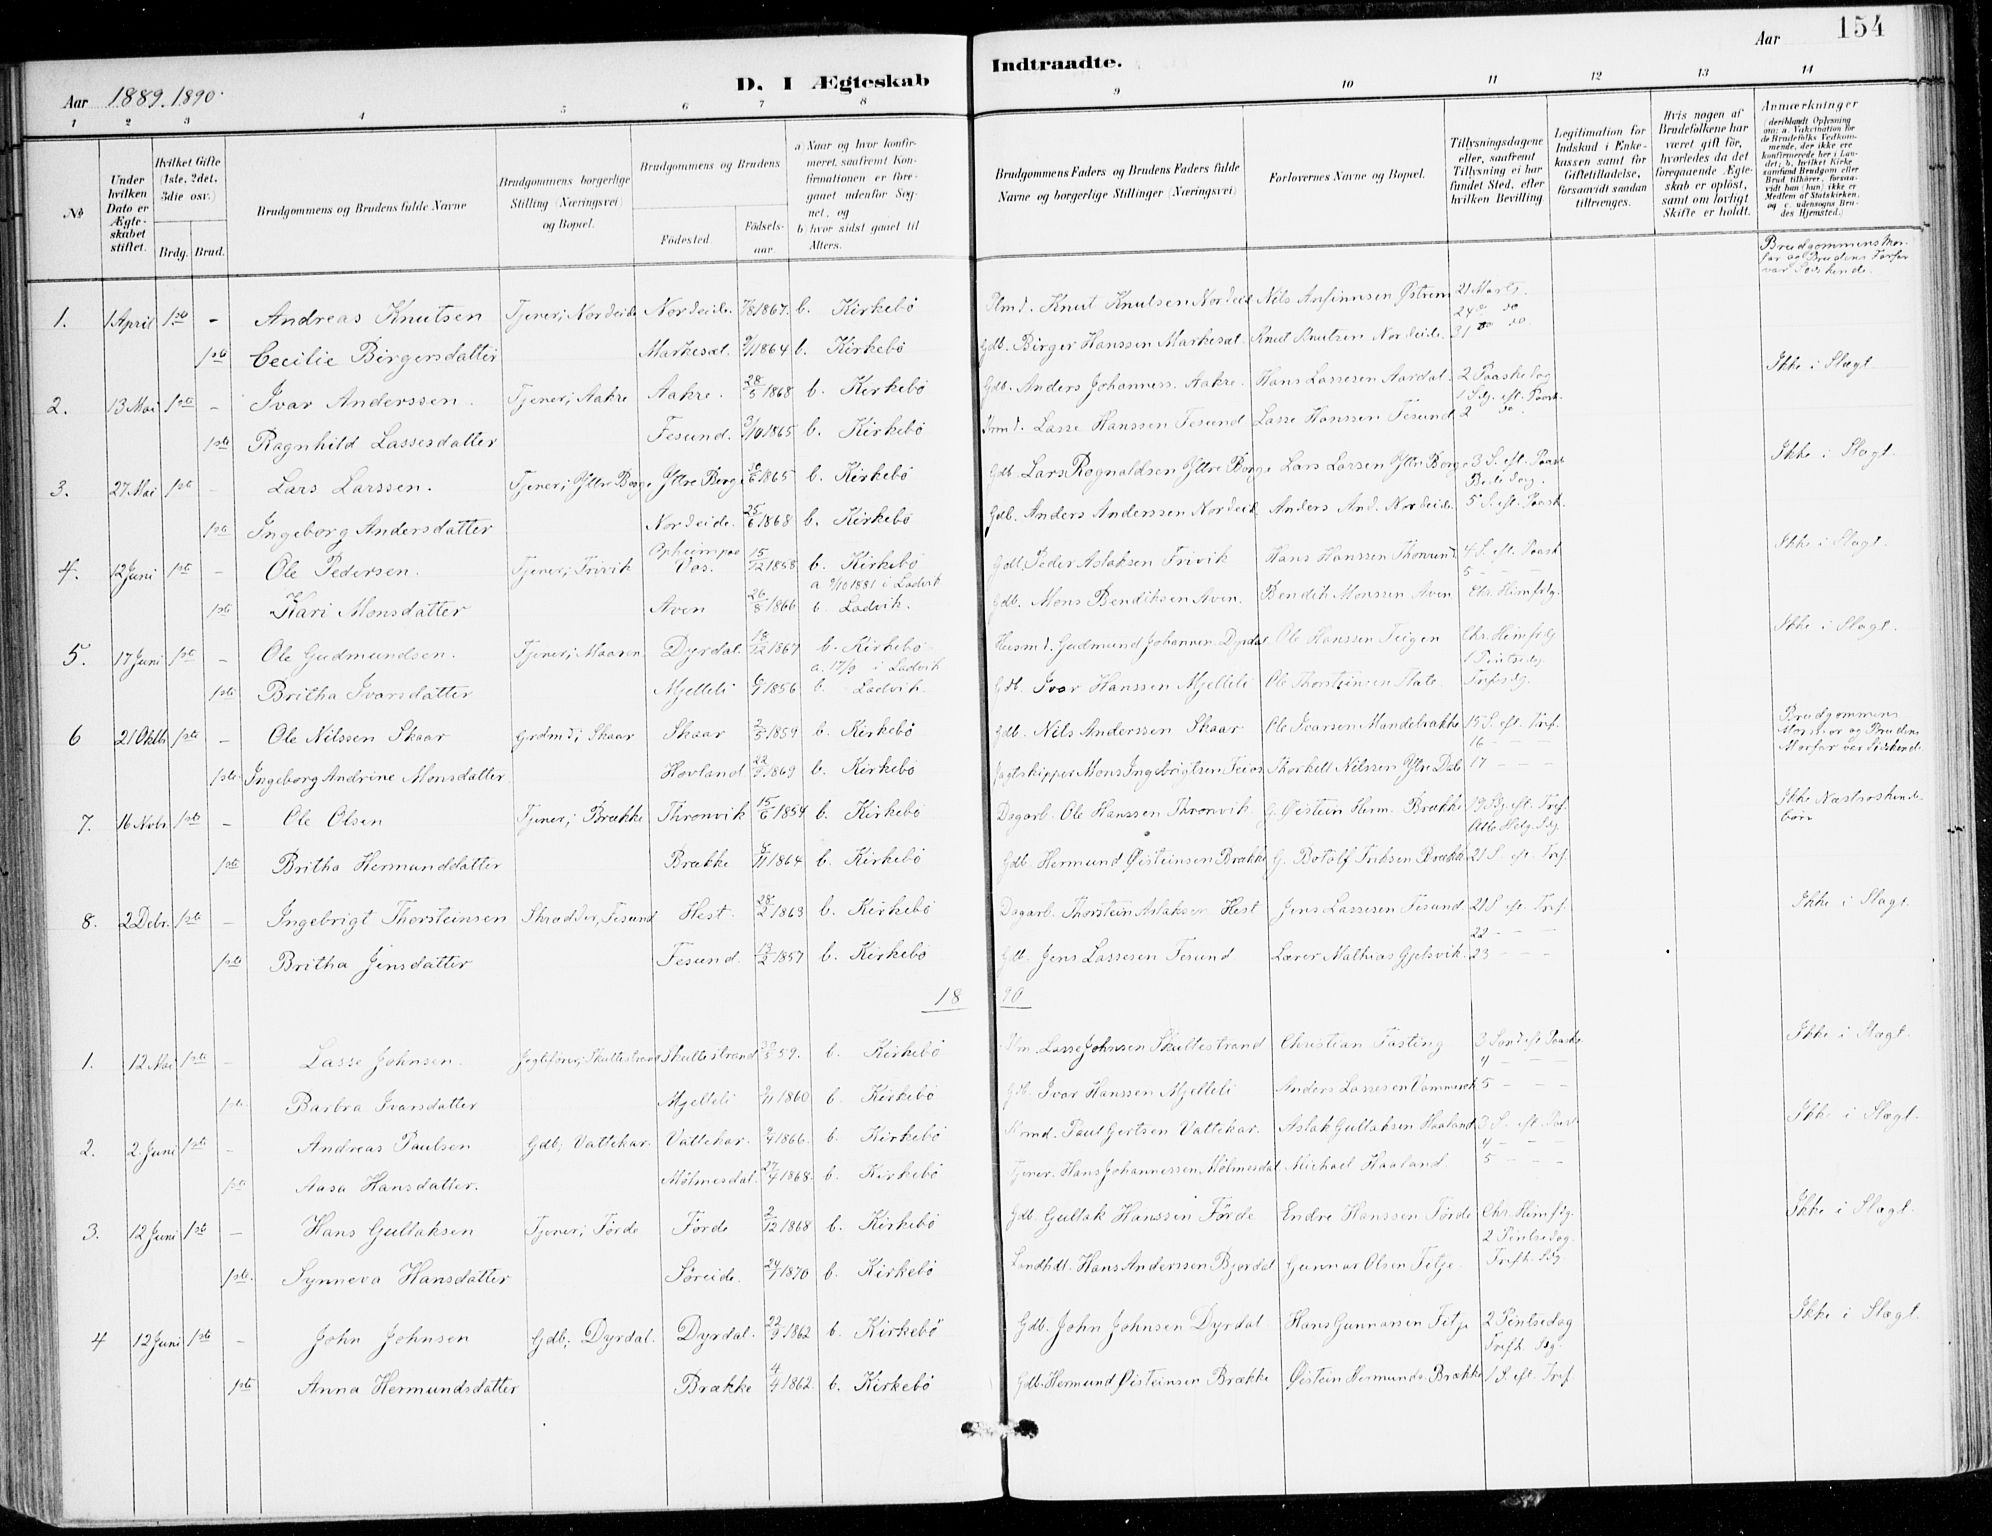 154
Aar 1889. 1890.
D. I Ægteskab Indtraadte.
Aar
1 2 3 4 5 6 7 8 9 10 11 12 13 14
No.
Under hvilken Dato er Ægteskabet stiftet.
Hvilket Gifte (1ste, 2det, 3die osv.)
Brdg. Brud.
Brudgommens og Brudens fulde Navne
Brudgommens borgerlige Stilling (Næringsvei) og Bopæl.
Brudgommens og Brudens
Fødested.
Fødselsaar.
a Naar og hvor konfirmeret, saafremt Konfirmationen er foregaaet udenfor Sognet, og
b) hvor sidst gaaet til Alters.
Brudgommens Faders og Brudens Faders fulde Navne og borgerlige Stillinger (Næringsvei)
Forlovernes Navne og Bopæl.
Tillysningsdagene eller, saafremt Tillysning ei har fundet Sted, efter hvilken Bevilling
Legitimation for Indskud i Enkekassen samt for Giftetilladelse, forsaavidt saadan tiltrænges.
Hvis nogen af Brudefolkene har været gift før, hvorledes da det foregaaende Ægteskab er opløst, samt om lovligt Skifte er holdt.
Anmærkninger (deriblandt Oplysning om: a. Vakcination for de Brudefolks Vedkommende, der ikke ere konfirmerede her i Landet; b. hvilket Kirkesamfund Brudgom eller Brud tilhører, forsaavidt han (hun) ikke er Medlem af Statskirken, og c. udensogns Brudes Hjemsted.)
1. 1 April 1ste - Andreas Knutsen Tjener, Nordeide Nordeide. 7/8 1867. b. Kirkebö Knut Knutsen Nordeide Nils Anfinnsen Østrem 21 Marts. Brudgommens Morfar og Brudens Farfar var Sødskende.
24 do do
1ste Cecilie Birgersdatter Markesæt 9/1 1864 b. Kirkebö Gdb. Birger Hanssen Markesæt. Knut Knutsen Nordeide. 31 do do
2. 13 Mai 1ste - Ivar Anderssen. Tjener, Aakre Aakre. 28/5 1868 b. Kirkebö Gdb. Anders Johanness. Aakre. Hans Lassesen Aardal 2 Paaskedag Ikke i Slægt
1 Sdg. eft. Paask.
1ste Ragnhild Lassesdatter Fesund. 3/10 1865 b. Kirkebö Lasse Hanssen Fesund Lasse Hanssen Fesund 2 do.
3. 27 Mai 1ste - Lars Larssen. Tjener, Yttre Borge Yttre Berge 1865 b. Kirkebö Gdb. Lars Ragnaldsen Yttre Borge Lars Larsen Yttre Borge 3 S. eft. Paask Ikke i Slægt.
Bededag.
1ste Ingeborg Andersdatter Nordeide. 25/6 1868 b. Kirkebö Gdb. Anders Anderssen Nordeide Anders And. Nordeide 5 S. eft. Paask.
4. 12 Juni 1ste - Ole Pedersen. Tjener, Trivik Vos. 15/12 1858 b. Kirkebö Gdb. Peder Aslaksen Trivik Hans Hanssen 4 S. eft. Paask Ikke i Slægt.
a 9/10 1881 i Ladvik 5 - - -
1ste Kari Monsdatter Aven 26/8 1866 b. Ladvik. Gdb. Mons Bendiksen Aven. Bendik Monssen Aven Chr. Himfdg.
5. 17 Juni 1ste - Ole Gudmundsen. Tjener, Maaren Dyrdal. 18/12 1867 b. Kirkebö Husmd. Gudmund Johannen Dyrdal Ole Hanssen Teigen Chr. Himfdg Ikke i Slægt.
a. 17/9 i Ladvik 1 Pintsedg.
1ste Britha Ivarsdatter Mjelleli 6/1 1856 b. Ladvik. Gdb. Ivar Hanssen Mjelleli Ole Thorsteinsen Trefsdg.
6 21 Oktb 1ste - Ole Nilssen Skaar Grdmd, Skaar Skaar 2/5 1859 b. Kirkebö Gdb. Nils Anderssen Skaar Ole Ivarsen Mandelrakke 15 S. eft. Tref. Brudgommens Morfar og Brudens Morfar var Sødskende
16 - - -
1ste. Ingeborg Andrine Monsdatter Hovland 22/9 1869 b. Kirkebö Jagtskipper Mons Ingebrigtsen Feios Thorkell Nilssen Ytre Dale 17 - - -
7. 16 Novbr 1ste - Ole Olsen Tjener, Brække Thronvik 15/6 1854 b. Kirkebö Dagarb. Ole Hanssen Thronvik G. Øistein Herm. Brække 19 Sg. eft. Tref. Ikke Næstsøskendebörn
Alle Helg. Sdg.
1ste Britha Hermundsdatter Brække 8/11 1864 b. Kirkebö Gdb. Hermund Øisteinsen Brække G. Botolf Eriksen Brække 21 S. eft. Tref.
8. 2 Debr. 1ste - Ingebrigt Thorsteinsen Skrædder, Fesund Hest. 28/2 1863 b. Kirkebö Dagarb. Thorstein Aslaksen Hest Jens Lassesen Fesund 21 S. eft. Tref. Ikke i Slægt.
22 - - -
1ste Britha Jensdatter Fesund. 13/2 1857 b. Kirkebö Gdb. Jens Lassesen Fesund Lærer Mathias Gjelsvik. 23 - - -
18 90
1. 12 Mai 1ste - Lasse Johnsen. Jagtefører, Skultestrand Skultestrand 59. b. Kirkebö Lasse Johnsen Skultestrand Christian Fasting 3 Sönd eft Paaske Ikke i Slægt.
4 - - -
1ste Barbra Ivarsdatter Mjelleli 9/11 1860 b. Kirkebö Gdb. Ivar Hanssen Mjelleli Anders Lassesen 5 - - -
2. 2 Juni 1ste - Andreas Paulsen Gdb, Vattekar. Vattekar. 9/4 1866. b. Kirkebö Paul Gertsen Vattekar. Aslak Gullaksen Haaland 3 S. eft. Paask Ikke i Slægt.
4 - - -
1ste Aasa Hansdatter. Mølmesdal. 27/4 1868. b. Kirkebö Tjener. Hans Johannessen Mølmesdal Michael Haaland. 5 - - -
3. 12 Juni 1ste - Hans Gullaksen Tjener, Førde Førde 2/12 1868 b. Kirkebö Gdb. Gullak Hanssen Førde Endre Hanssen Førde Chr. Himfdg. Ikke i Slægt.
2 Pintsedag.
1ste. Synneva Hansdatter Søreide. 24/1 1870 b. Kirkebö Landhdl. Hans Anderssen Bjordal Gunnar Olsen Fitje. Trefh. Sdg.
4 12 Juni 1ste - John Johnsen Gdb, Dyrdal. Dyrdal. 22/9 1862 b. Kirkebö Gdb. John Johnsen Dyrdal Hans Gunnarsen Fitje 2 Pintsedag Ikke i Slægt.
Trefh. Sdg.
1ste Anna Hermundsdatter Brække 4/4 1862. b. Kirkebö Gdb. Hermund Øisteinsen Brække Øistein Hermunds. Brække 1 S. eft. Tref.